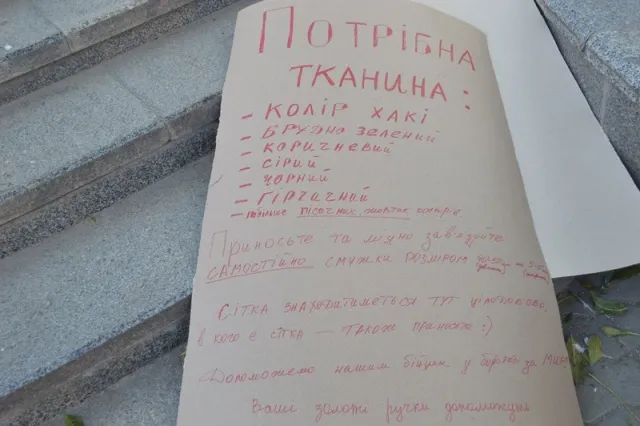 ПОТРІБНА
ТКАНИНА:
- КОЛІР ХАКІ
- БРУДНО ЗЕЛЕНИЙ
- КОРИЧНЕВИЙ
- СІРИЙ
- ЧОРНИЙ
- ГІРЧИЧНИЙ
- пісочних, жовтих
Приносьте та міцно зав'язуйте
САМОСТІЙНО смужки розміром
Сітка знаходитиметься тут цілодобово,
в кого є сітка — також приносьте :)
Допоможемо нашим бійцям у борьбі за МИР!
Ваші золоті ручки допоможуть